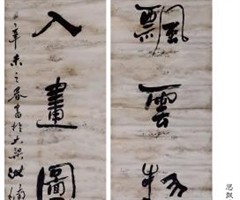 思飘
飄雲物
入畫圖
辛未之春書於大梁